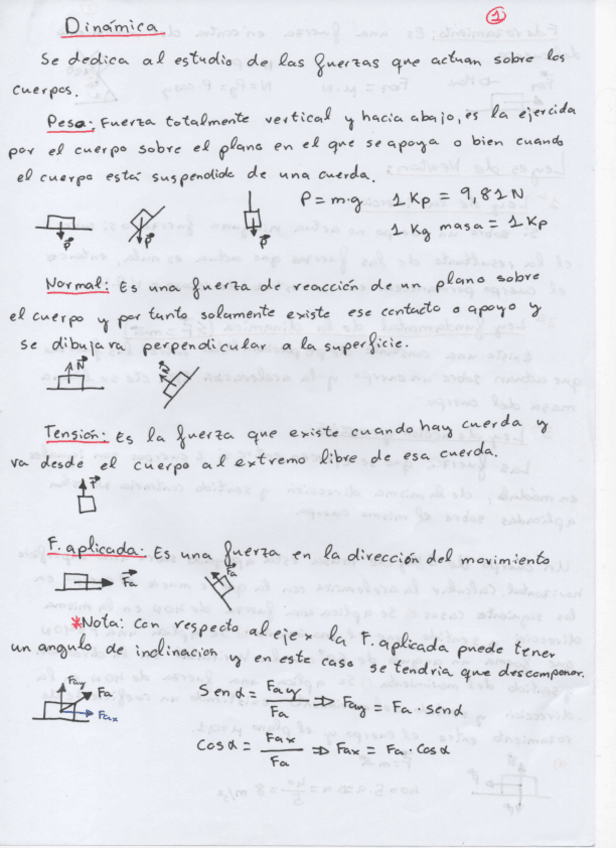 1
Dinámica
Se dedica al estudio de las fuerzas que actuan sobre los
cuerpos.
Peso: Fuerza totalmente vertical y hacia abajo, es la ejercida
por el cuerpo sobre el plano en el que se apoya o bien cuando
el cuerpo está suspendido de una cuerda.
P = m·g 1 Kp = 9,81 N
1 Kg masa = 1 Kp
P P P
Normal: Es una fuerza de reacción de un plano sobre
el cuerpo y por tanto solamente existe ese contacto o apoyo y
se dibujara perpendicular a la superficie.
N N
Tensión: Es la fuerza que existe cuando hay cuerda y
va desde el cuerpo al extremo libre de esa cuerda.
T
F. aplicada: Es una fuerza en la dirección del movimiento
Fa Fa
*Nota: Con respecto al eje x la F. aplicada puede tener
un angulo de inclinacion y en este caso se tendria que descomponer.
Fay Fa Fax
Sen α = Fay / Fa ⇒ Fay = Fa · sen α
Cos α = Fax / Fa ⇒ Fax = Fa · Cos α